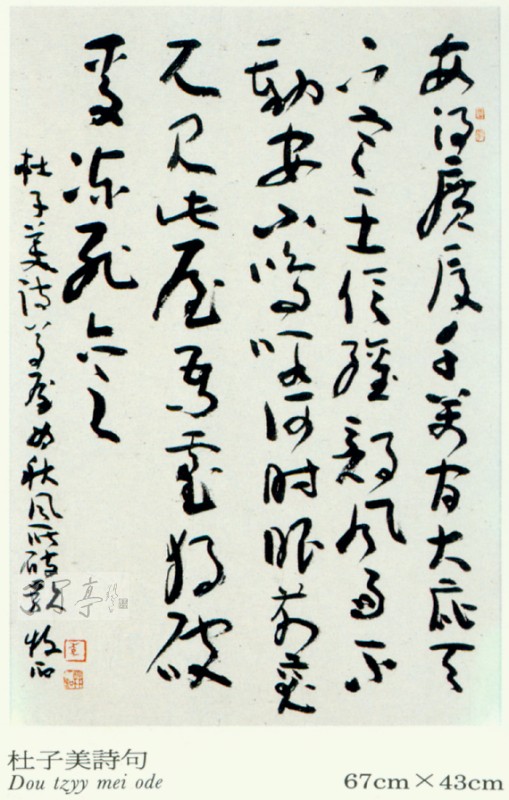 安得廣厦千萬間大庇天
下寒士俱歡顏風雨不
動安如山嗚呼何時眼前突
兀見此屋吾廬獨破
受凍死亦足
杜子美詩茅屋為秋風所破歌 牧石
杜子美詩句
Dou tzyy mei ode
67cm×43cm